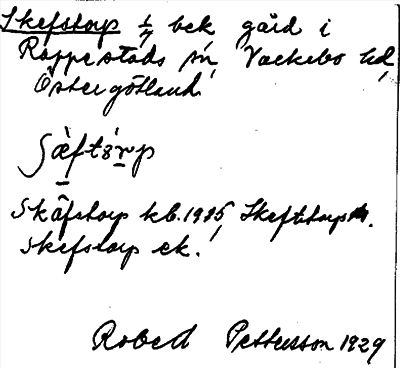 Skefstorp 1/4 bek gård i
Rappestads sn, Vackebo hd,
Östergötland
ʃæ̀ftór̠p
Skäfstorp kb. 1985, Skeftstorp
Skefstorp ek.
Robert Pettersson 1929